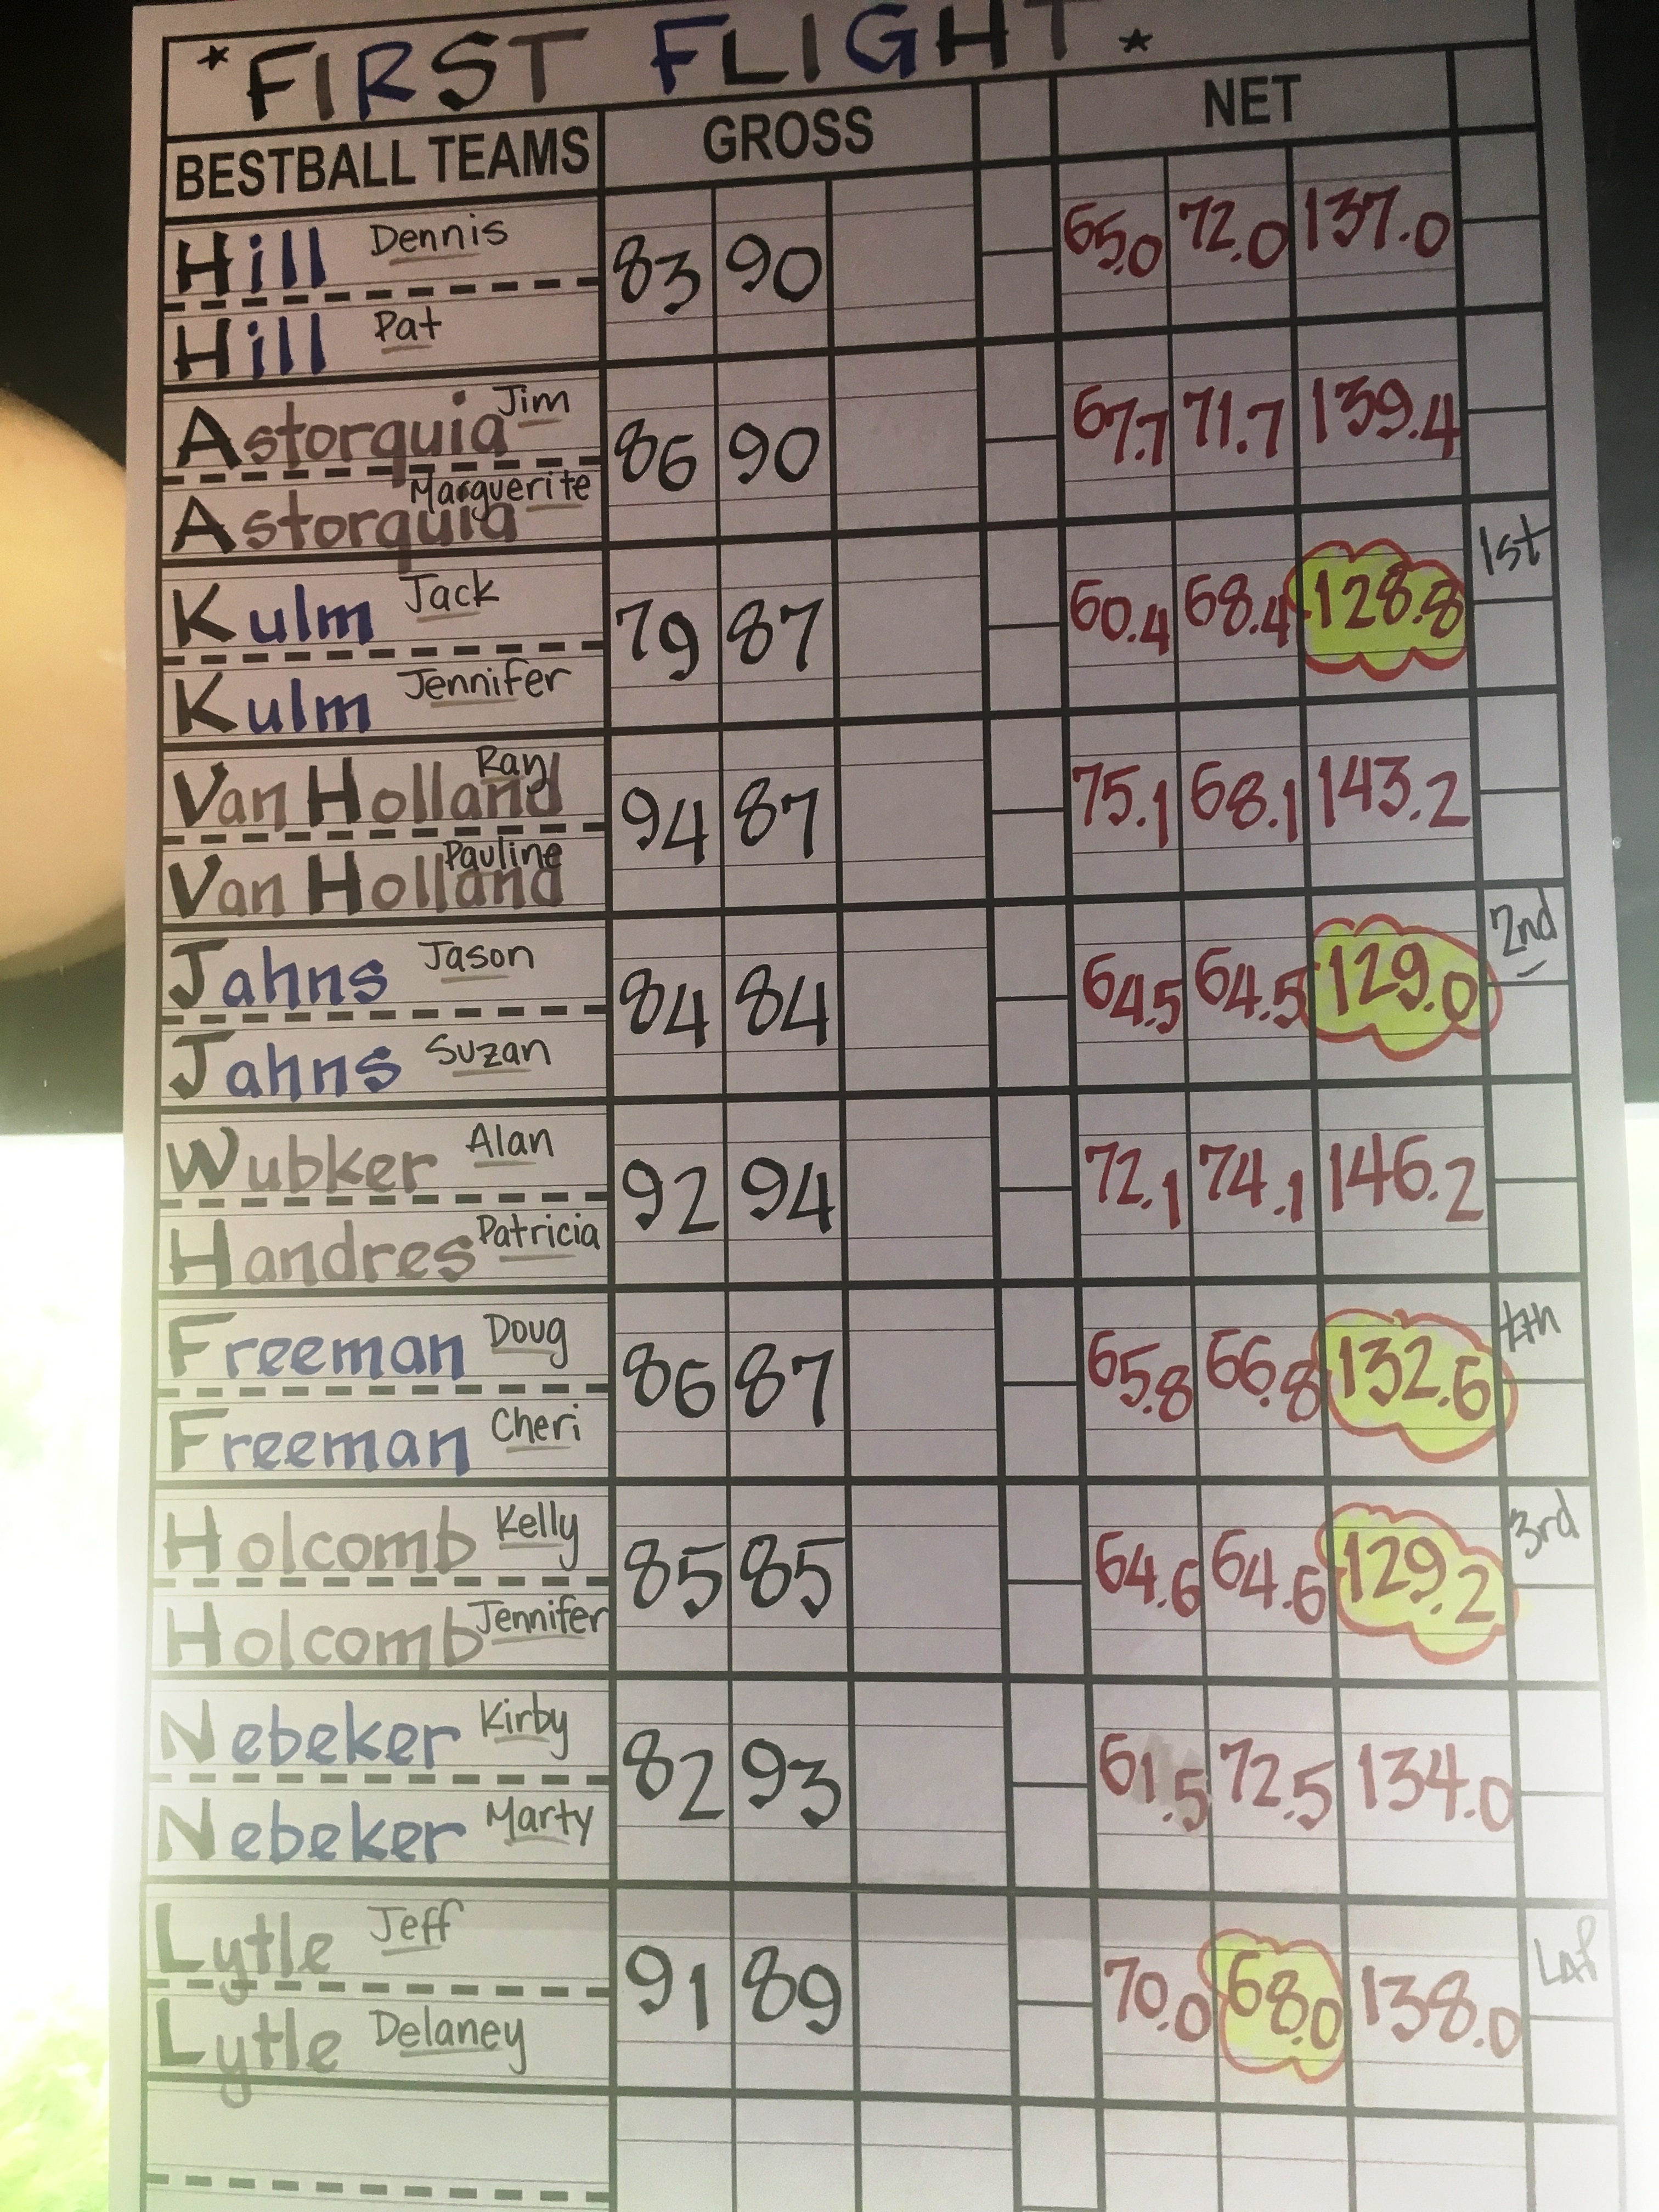 *FIRST FLIGHT*
BESTBALL TEAMS GROSS NET
Hill Dennis 83 90 65.0 72.0 137.0
Hill Pat
Astorquia Jim 86 90 67.7 71.7 139.4
Astorquia Marguerite
Kulm Jack 79 87 60.4 68.4 128.8 1st
Kulm Jennifer
Van Holland Ray 94 87 75.1 68.1 143.2
Van Holland Pauline
Jahns Jason 84 84 64.5 64.5 129.0 2nd
Jahns Suzan
Wubker Alan 92 94 72.1 74.1 146.2
Handres Patricia
Freeman Doug 86 87 65.8 66.8 132.6 4th
Freeman Cheri
Holcomb Kelly 85 85 64.6 64.6 129.2 3rd
Holcomb Jennifer
Nebeker Kirby 82 93 61.5 72.5 134.0
Nebeker Marty
Lytle Jeff 91 89 70.0 68.0 138.0
Lytle Delaney